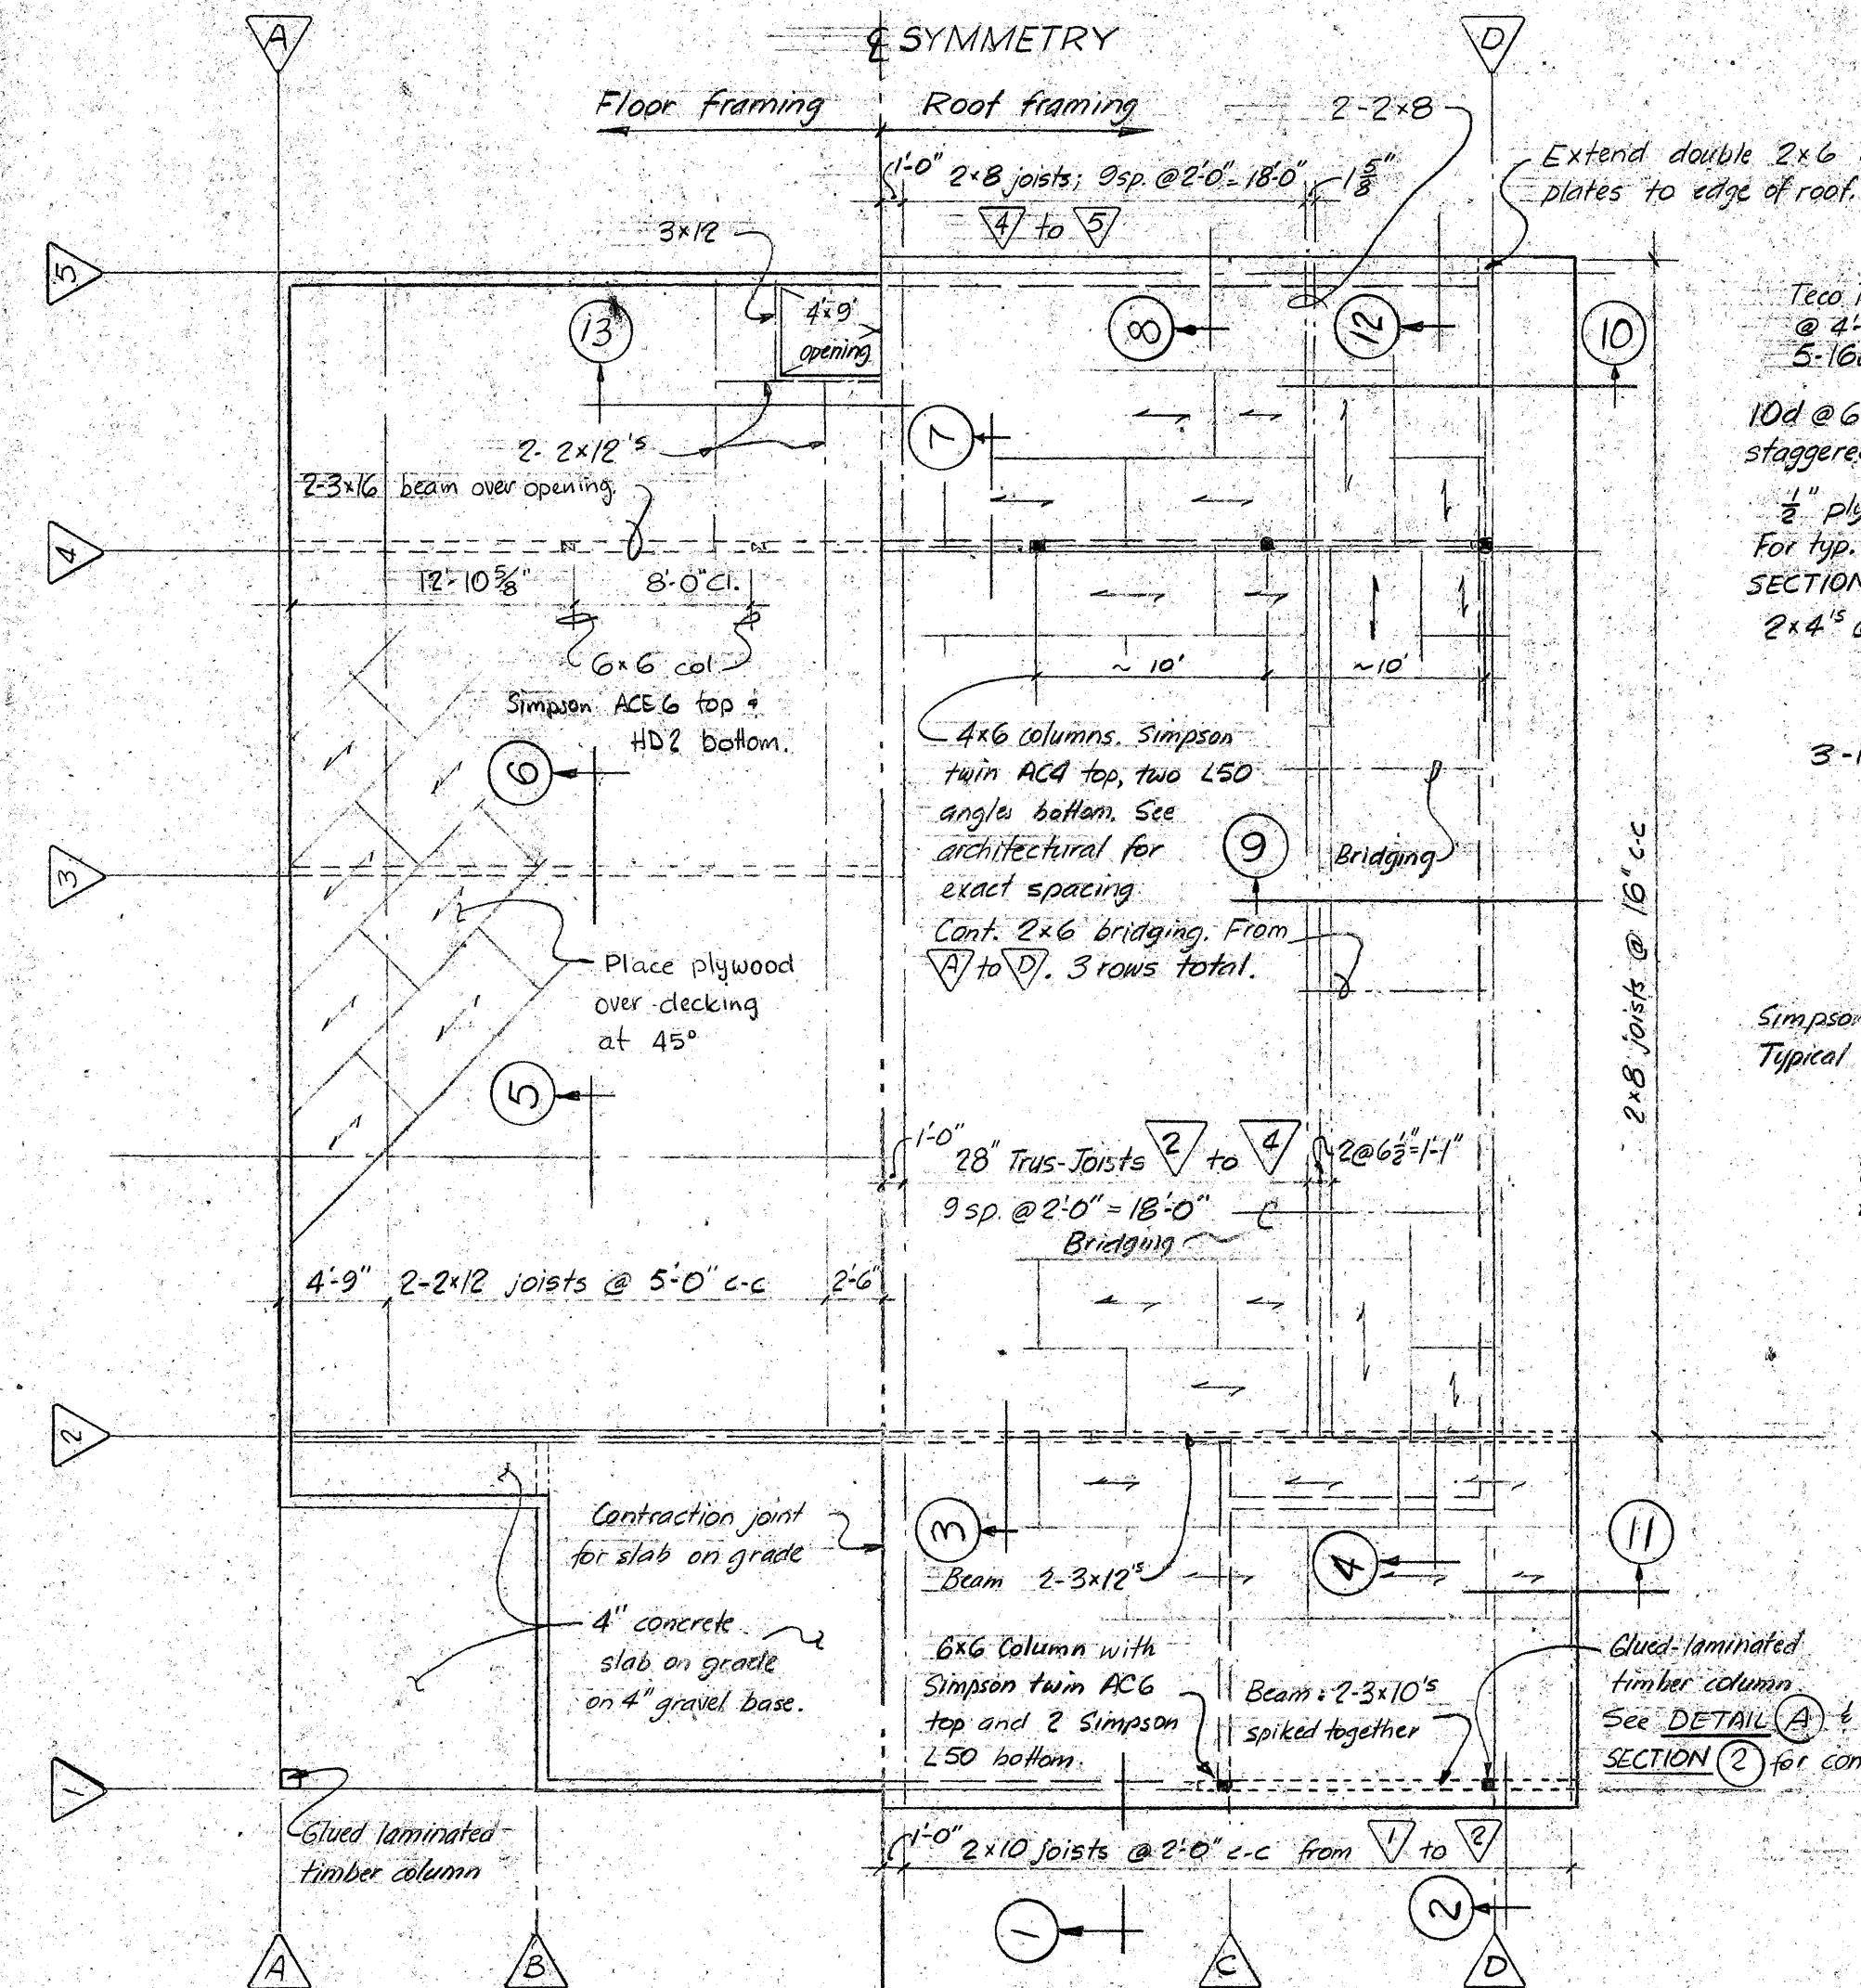 A
℄ SYMMETRY
D
Floor framing
Roof framing
2-2×8
1'-0" 2×8 joists; 9sp. @ 2'-0" = 18'-0"
1 5/8"
4 to 5
Extend double 2×6
plates to edge of roof.
3×12
5
4'×9'
opening
13
8
12
10
Teco
@ 4'-
5-16
10d @ 6
staggere
7
2-2×12's
2-3×16 beam over opening.
1/2" ply
For typ.
SECTION
2×4's
4
12'-10 5/8"
8'-0" Cl.
6×6 col
Simpson ACE 6 top &
HD2 bottom.
~ 10'
~10'
6
4×6 columns. Simpson
twin AC4 top, two L50
angles bottom. See
architectural for
exact spacing
9
Bridging
3-
3
Cont. 2×6 bridging. From
A to D. 3 rows total.
2×8 joists @ 16" c-c
Place plywood
over decking
at 45°
Simpson
Typical
5
1'-0"
28" Trus-Joists 2 to 4
2@6 1/2"=1'-1"
9 sp. @ 2'-0" = 18'-0"
Bridging
4'-9"
2-2×12 joists @ 5'-0" c-c
2'-6"
2
Contraction joint
for slab on grade
3
4
11
Beam 2-3×12's
4" concrete
slab on grade
on 4" gravel base.
6×6 Column with
Simpson twin AC6
top and 2 Simpson
L50 bottom.
Beam: 2-3×10's
spiked together
Glued-laminated
timber column.
See DETAIL A &
SECTION 2 for con
1
Glued laminated
timber column
1'-0" 2×10 joists @ 2'-0" c-c from 1 to 2
1
2
A
B
C
D